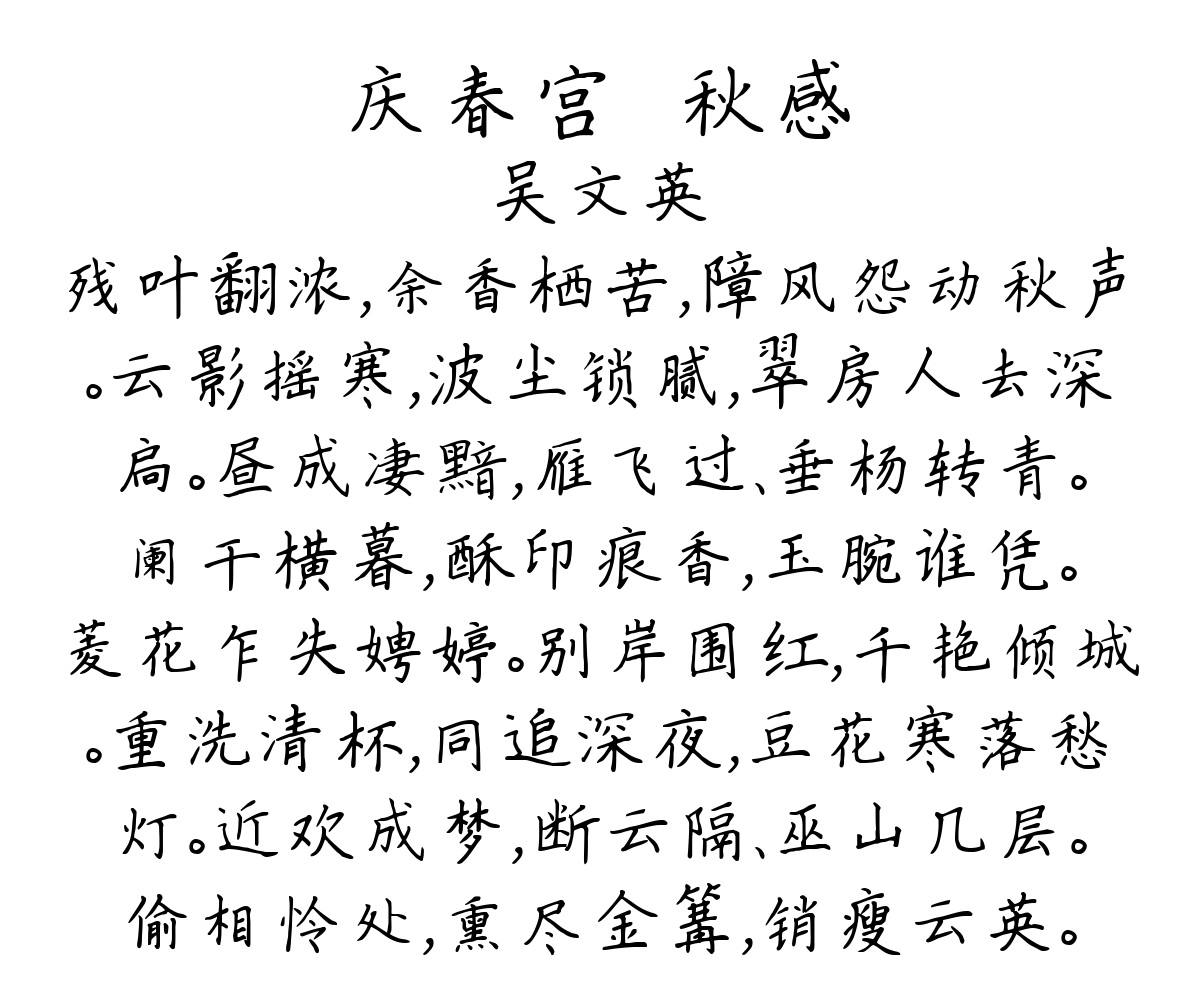 庆春宫 秋感
吴文英
残叶翻浓,余香栖苦,障风怨动秋声
。云影摇寒,波尘锁腻,翠房人去深
扃。昼成凄黯,雁飞过、垂杨转青。
阑干横暮,酥印痕香,玉腕谁凭。
菱花乍失娉婷。别岸围红,千艳倾城
。重洗清杯,同追深夜,豆花寒落愁
灯。近欢成梦,断云隔、巫山几层。
偷相怜处,熏尽金篝,销瘦云英。